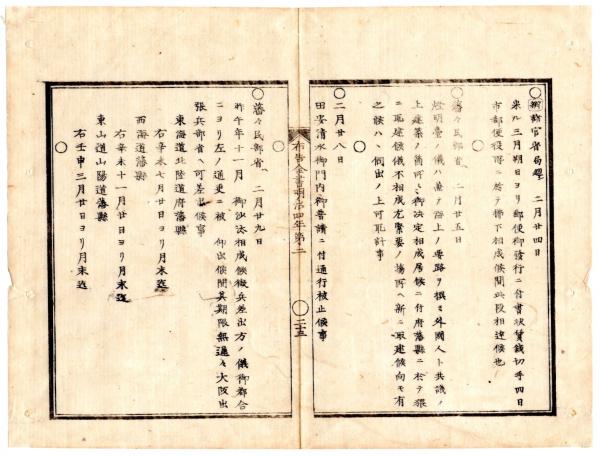 二月廿四日
來ル三月朔日ヨリ郵便御發行ニ付書状賃錢切手四日
市郵便役所ニ於テ拂下相成候間此段相達候也
藩々民部省ヘ 二月廿五日
燈明臺ノ儀ハ萬
海上ノ要路ヲ撰ミ外國人ト共議ノ
上建築ノ箇所
御決定相成居候ニ付府藩縣ニ於テ猥
ニ取建候儀不相成尤緊要ノ場所ヘ新ニ取建候向モ有
之候ハヽ伺出ノ上可取計事
二月廿八日
田安清水御門内御普請ニ付通行被止候事
布告全書明治四年第二
二十五
藩々民部省ヘ 二月廿九日
昨午年十一月 御沙汰相成候徴兵差出方ノ儀御都合
ニヨリ左ノ通更ニ被 仰出候間其期限無遅々大阪出
張兵部省ヘ可差出候事
東海道北陸道府藩縣
右辛未七月廿日ヨリ月末迄
西海道藩縣
右辛未十一月廿日ヨリ月末迄
東山道山陽道藩縣
右壬申三月廿日ヨリ月末迄